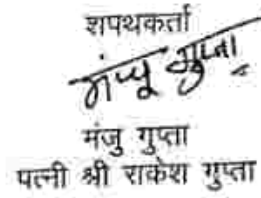 शपथकर्ता
मंजू गुप्ता
मंजु गुप्ता
पत्नी श्री राकेश गुप्ता